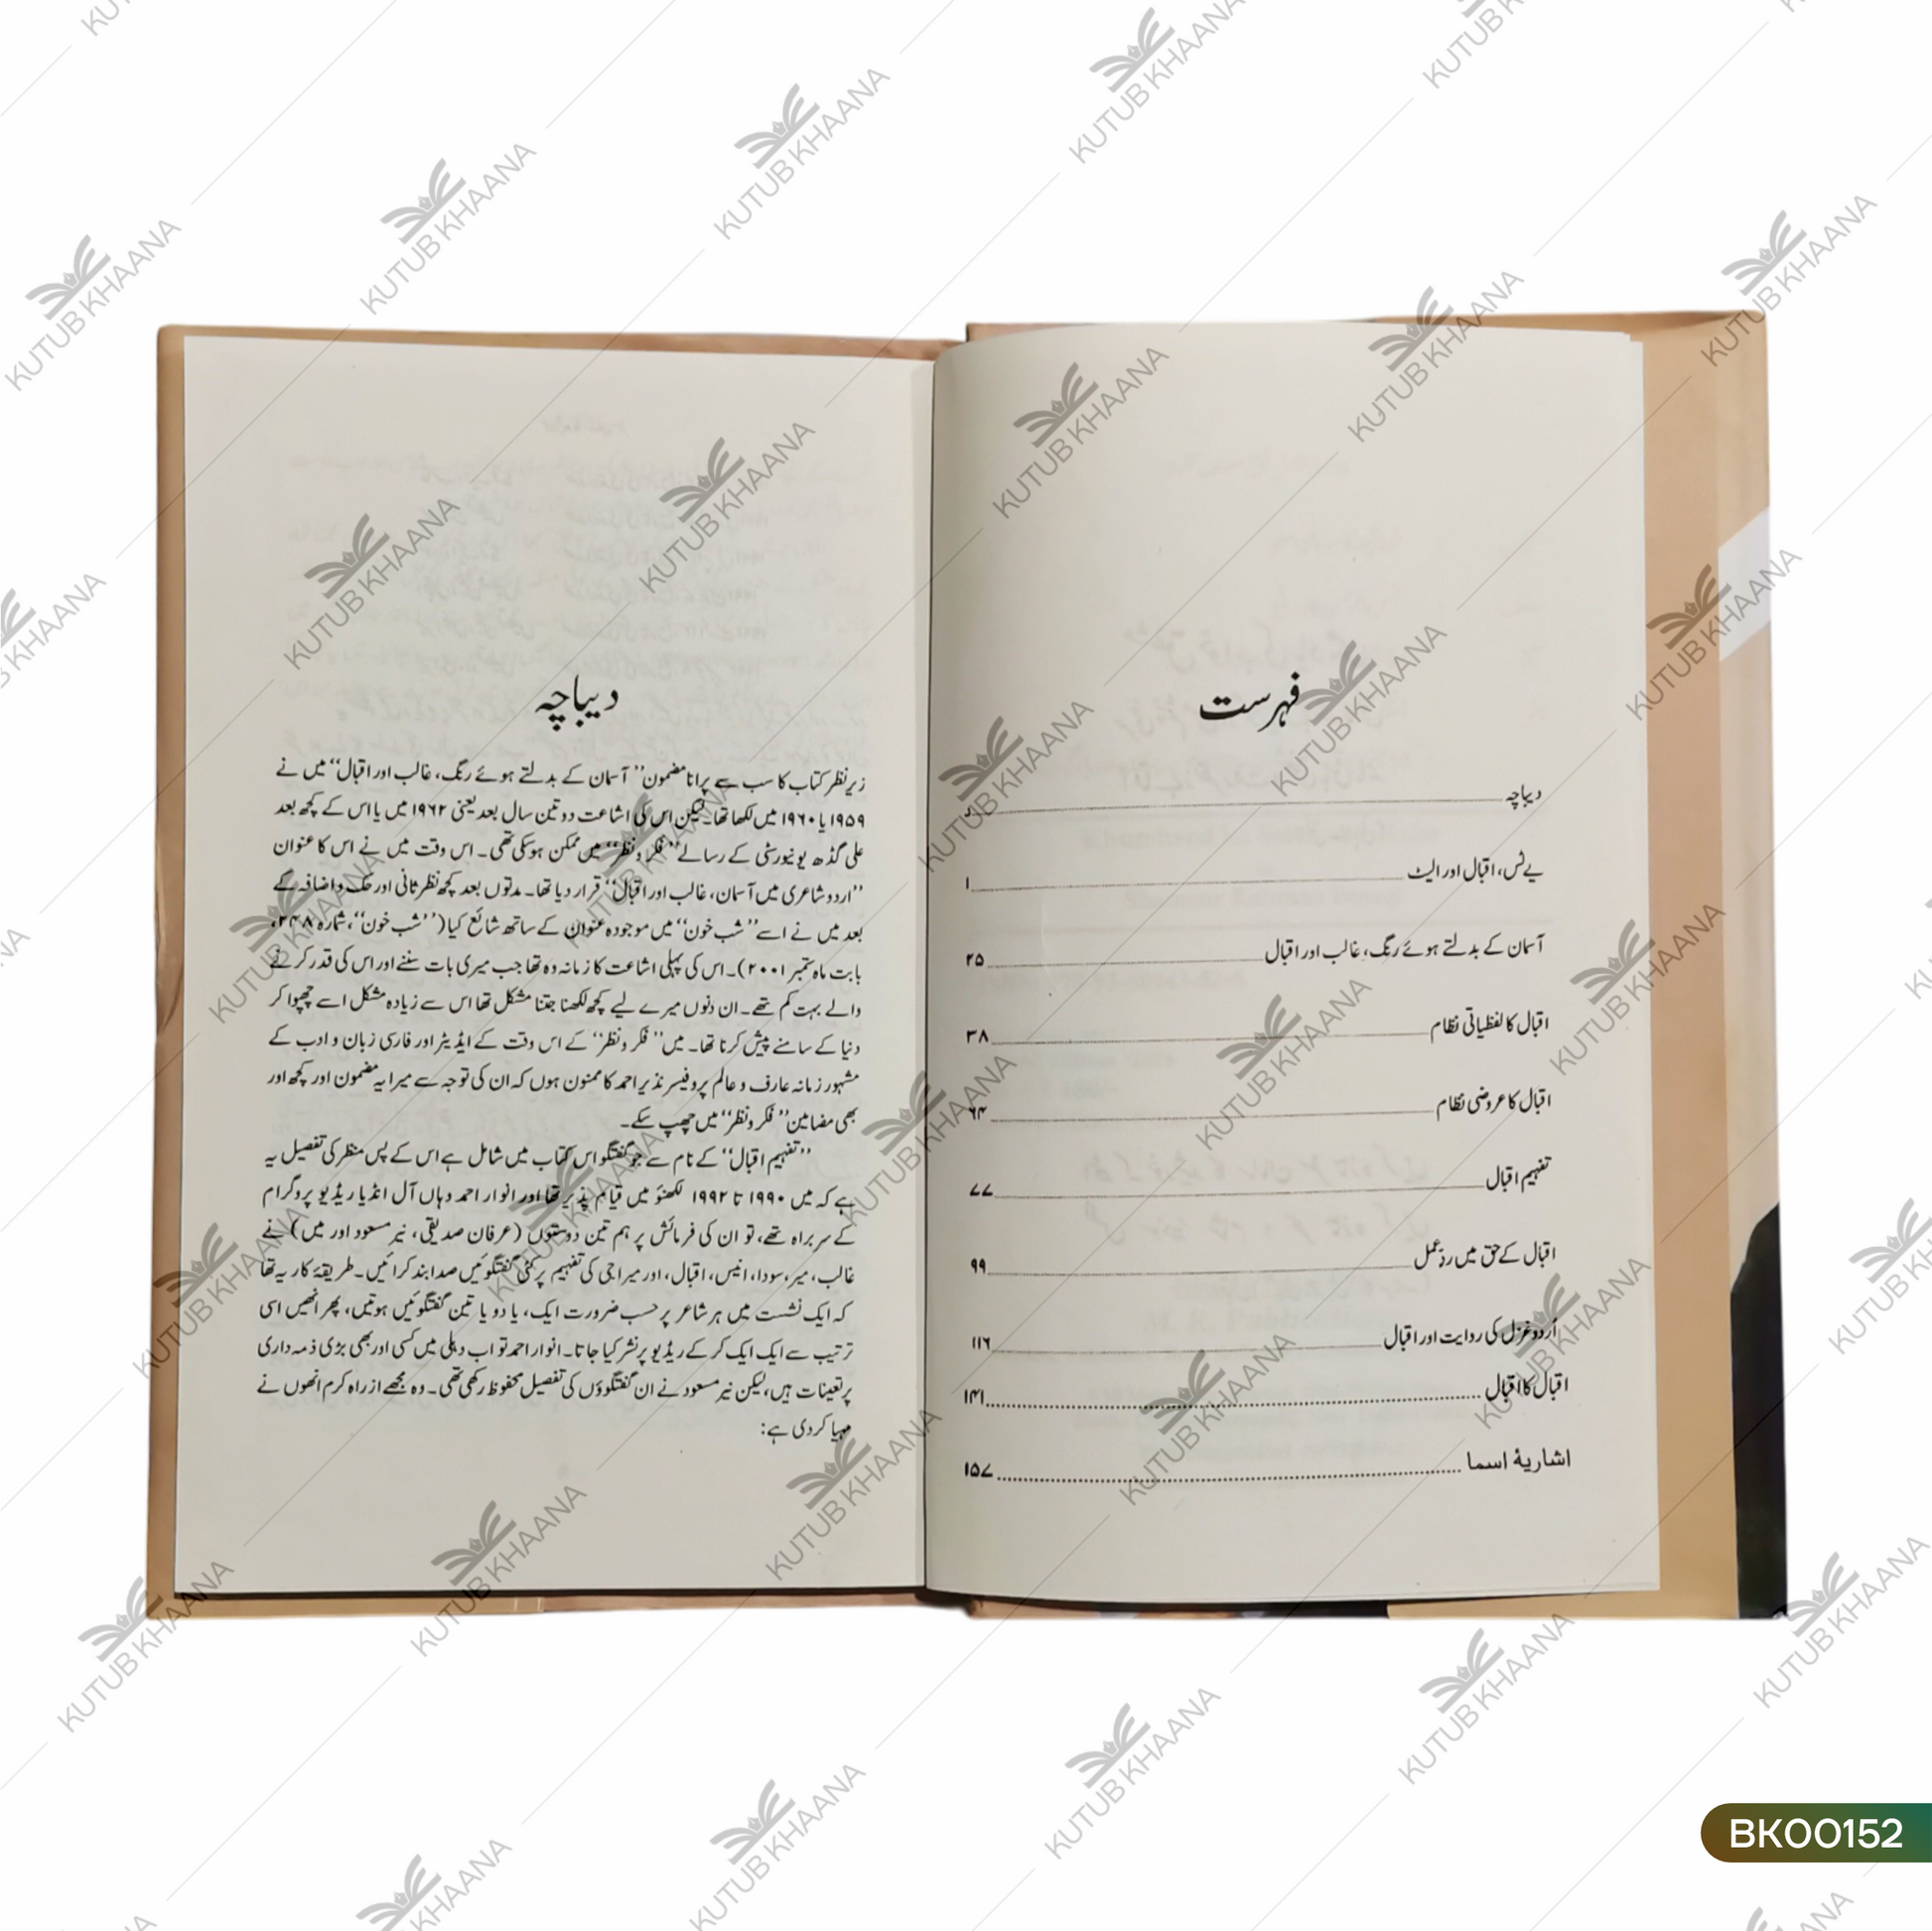 فہرست
دیباچہ
یے ٹس، اقبال اور الیٹ ۱
آسمان کے بدلتے ہوئے رنگ، غالب اور اقبال ۲۵
اقبال کا لفظیاتی نظام ۳۸
اقبال کا عروضی نظام ۶۴
تفہیم اقبال ۷۷
اقبال کے حق میں ردِ عمل ۹۹
اُردو غزل کی روایت اور اقبال ۱۱۶
اقبال کا اقبال ۱۴۱
اشاریۂ اسما ۱۵۷
دیباچہ
زیر نظر کتاب کا سب سے پرانا مضمون ’’آسمان کے بدلتے ہوئے رنگ، غالب اور اقبال‘‘ میں نے
۱۹۵۹ یا ۱۹۶۰ میں لکھا تھا۔ لیکن اس کی اشاعت دو تین سال بعد یعنی ۱۹۶۲ میں یا اس کے کچھ بعد
علی گڈھ یونیورسٹی کے رسالے ’’فکر و نظر‘‘ میں ممکن ہو سکی تھی۔ اس وقت میں نے اس کا عنوان
’’اردو شاعری میں آسمان، غالب اور اقبال‘‘ قرار دیا تھا۔ مدتوں بعد کچھ نظر ثانی اور حک و اضافہ کے
بعد میں نے اسے ’’شب خون‘‘ میں موجودہ عنوان کے ساتھ شائع کیا (’’شب خون‘‘، شمارہ ۲۴۸،
بابت ماہ ستمبر ۲۰۰۱)۔ اس کی پہلی اشاعت کا زمانہ وہ تھا جب میری بات سننے اور اس کی قدر کرنے
والے بہت کم تھے۔ ان دنوں میرے لیے کچھ لکھنا جتنا مشکل تھا اس سے زیادہ مشکل اسے چھپوا کر
دنیا کے سامنے پیش کرنا تھا۔ میں ’’فکر و نظر‘‘ کے اس وقت کے ایڈیٹر اور فارسی زبان و ادب کے
مشہور زمانہ عارف و عالم پروفیسر نذیر احمد کا ممنون ہوں کہ ان کی توجہ سے میرا یہ مضمون اور کچھ اور
بھی مضامین ’’فکر و نظر‘‘ میں چھپ سکے۔
’’تفہیم اقبال‘‘ کے نام سے جو گفتگو اس کتاب میں شامل ہے اس کے پس منظر کی تفصیل یہ
ہے کہ میں ۱۹۹۰ تا ۱۹۹۲ لکھنؤ میں قیام پذیر تھا اور انوار احمد وہاں آل انڈیا ریڈیو پروگرام
کے سربراہ تھے، تو ان کی فرمائش پر ہم تین دوستوں (عرفان صدیقی، نیر مسعود اور میں) نے
غالب، میر، سودا، انیس، اقبال، اور میراجی کی تفہیم پر کئی گفتگوئیں صدا بند کرائیں۔ طریقۂ کار یہ تھا
کہ ایک نشست میں ہر شاعر پر حسب ضرورت ایک، یا دو یا تین گفتگوئیں ہوتیں، پھر انھیں اسی
ترتیب سے ایک ایک کر کے ریڈیو پر نشر کیا جاتا۔ انوار احمد تو اب دہلی میں کسی اور بھی بڑی ذمہ داری
پر تعینات ہیں، لیکن نیر مسعود نے ان گفتگوؤں کی تفصیل محفوظ رکھی تھی۔ وہ مجھے از راہ کرم انھوں نے
مہیا کر دی ہے:
KUTUB KHAANA
BK00152